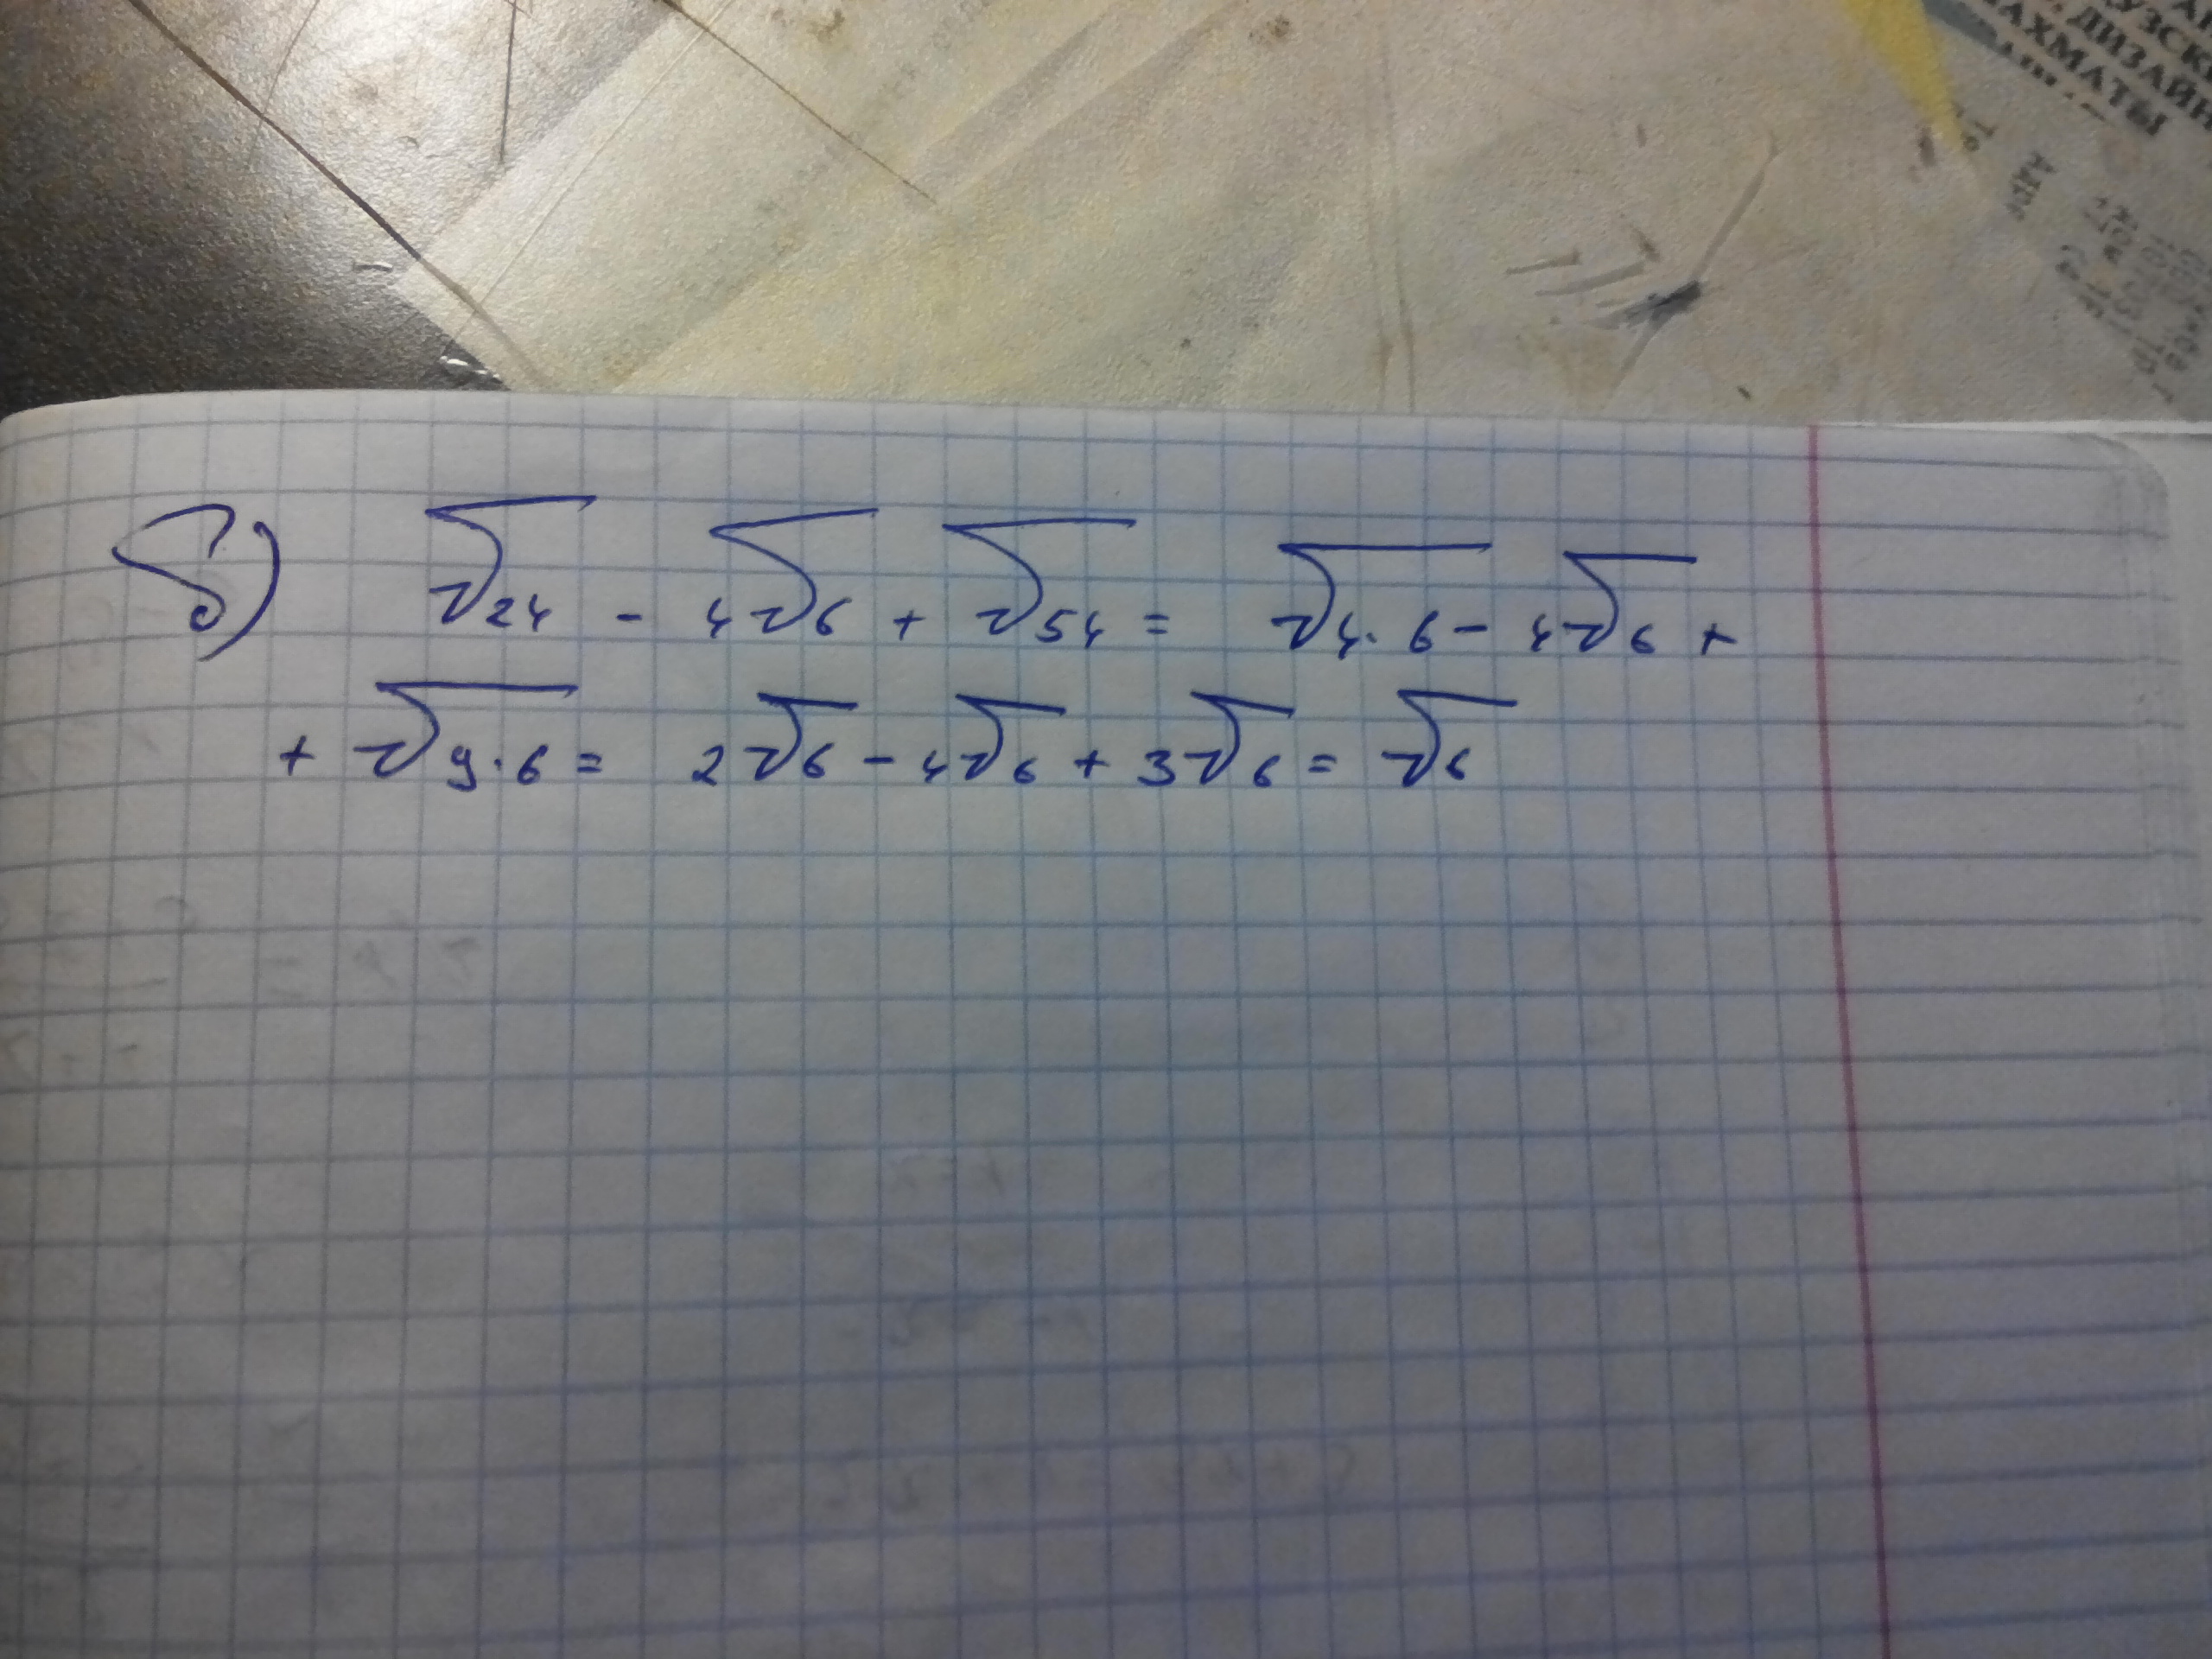 УЗСКИ
ДИЗАЙН
ШАХМАТЫ
б) √24 - 4√6 + √54 = √4·6 - 4√6 +
+ √9·6 = 2√6 - 4√6 + 3√6 = √6